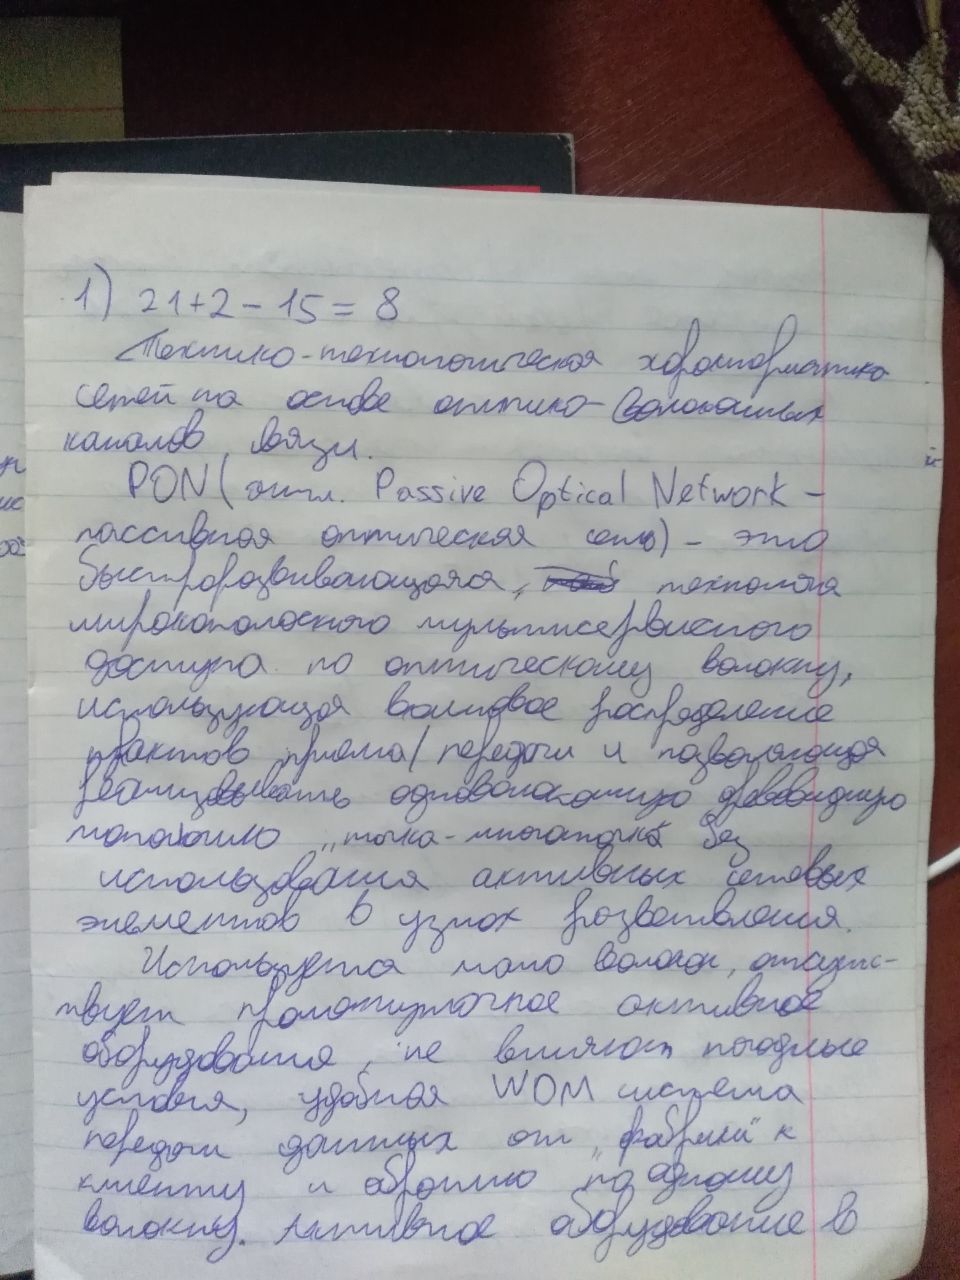 1) 21+2-15=8
Технико-технологическая характеристика
сетей на основе оптико-волоконных
каналов связи.
PON (англ. Passive Optical Network -
пассивная оптическая сеть) - это
быстроразвивающаяся, технология
широкополосного мультисервисного
доступа по оптическому волокну,
использующая волновое распределение
трактов приема/передачи и позволяющая
реализовывать одноволоконную древовидную
топологию "точка-многоточка" без
использования активных сетевых
элементов в узлах разветвления.
Используется мало волокон, отсутс-
твует промежуточное активное
оборудование, не влияют погодные
условия, удобная WDM система
передачи данных от "фабрики" к
клиенту и обратно по одному
волокну. Активное оборудование в